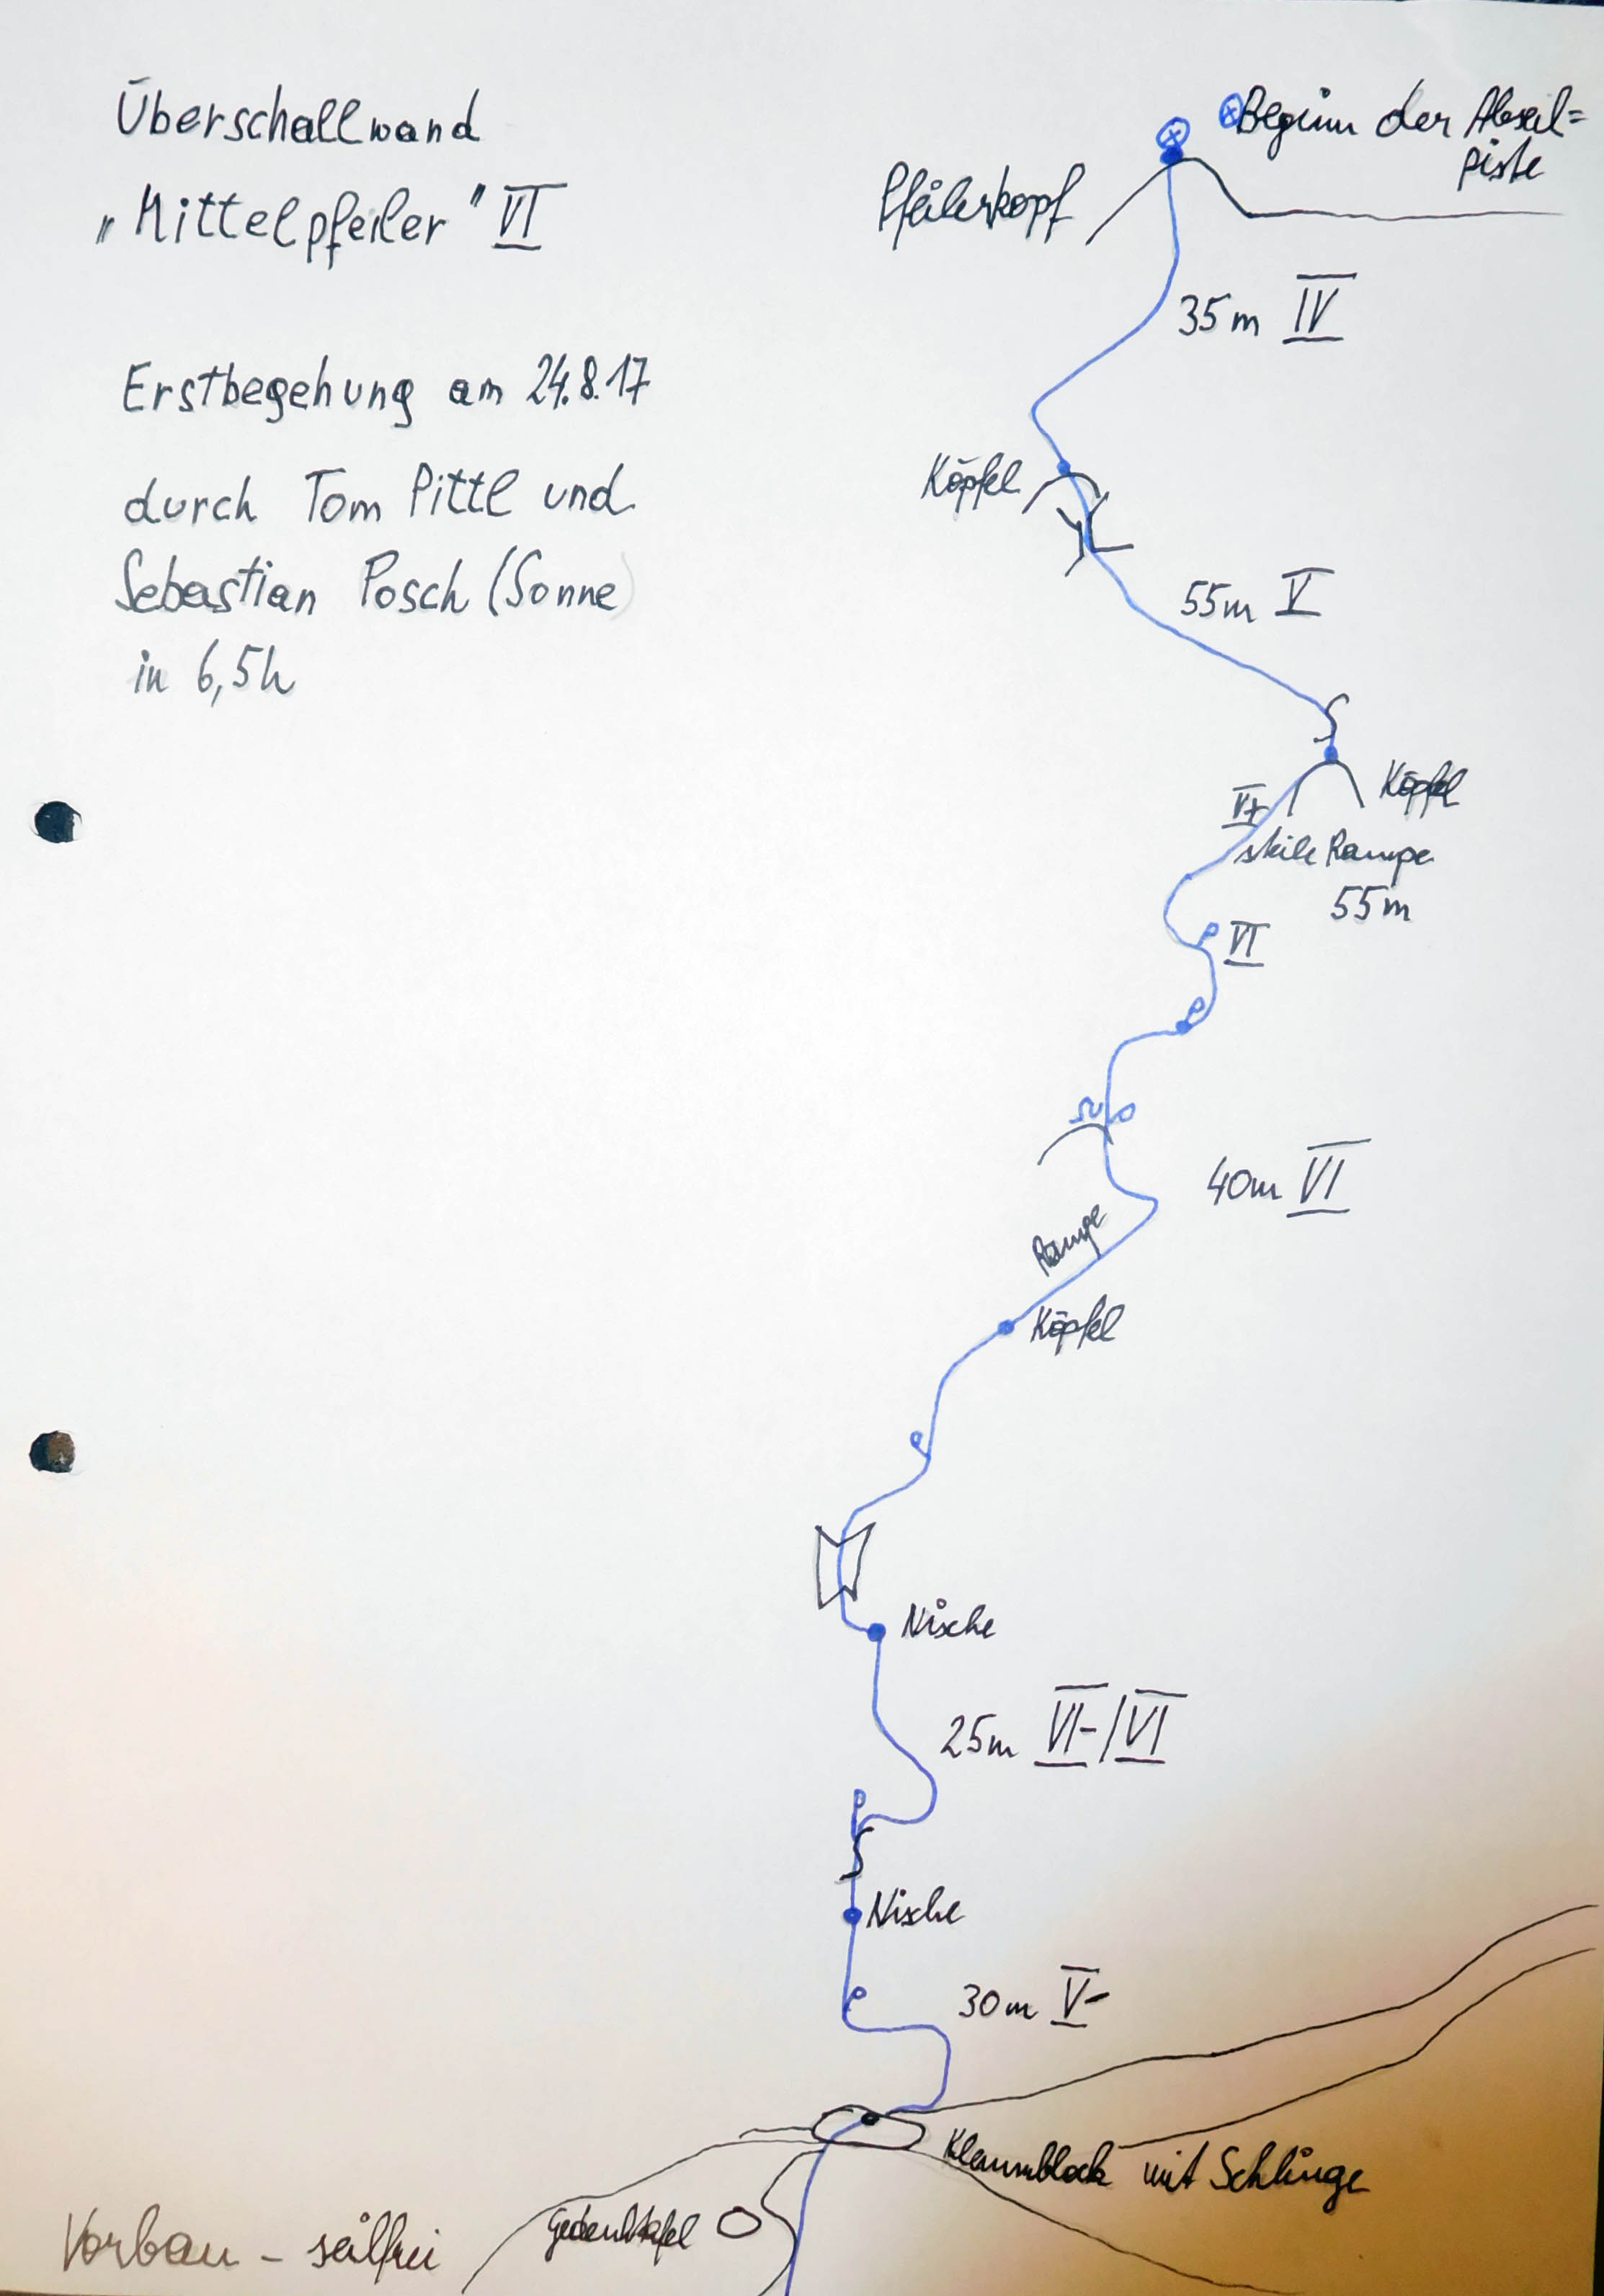 Überschallwand
"Mittelpfeiler" VI
Erstbegehung am 24.8.17
durch Tom Pittl und
Sebastian Posch (Sonne)
in 6,5h
Beginn der Abseil=
piste
Pfeilerkopf
35m IV
Köpfel
55m V
Köpfel
V+
steile Rampe
55m
VI
SU
40m VI
Rampe
Köpfel
Nische
25m VI-/VI
Nische
30m V-
Klemmblock mit Schlinge
Gedenktafel
Vorbau - seilfrei